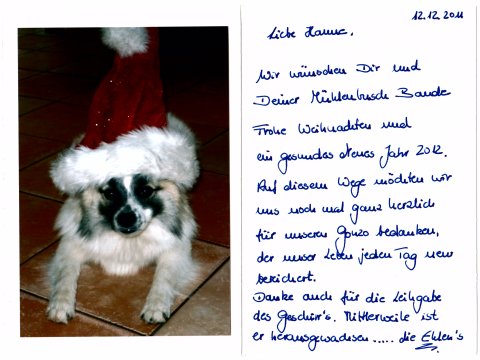 12.12.2011
Liebe Hanne,
Wir wünschen Dir und
Deiner Mühlenbusch Bande
Frohe Weihnachten und
ein gesundes neues Jahr 2012.
Auf diesem Wege möchten wir
uns noch mal ganz herzlich
für unseren Gonzo bedanken,
der unser Leben jeden Tag neu
bereichert.
Danke auch für die Leihgabe
des Geschirr's. Mittlerweile ist
er herausgewachsen ..... die Ehlen's